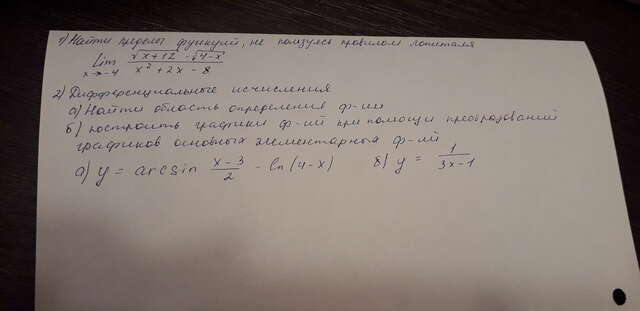 1) Найти пределы функций, не пользуясь правилом лопиталя
lim x→-4 (√(x+12) - √(4-x)) / (x² + 2x - 8)
2) Дифференциальные исчисления
а) Найти область определения ф-ии
б) построить графики ф-ий при помощи преобразований
графиков основных элементарных ф-ий
а) y = arcsin (x-3)/2 - ln(4-x) б) y = 1/(3x-1)